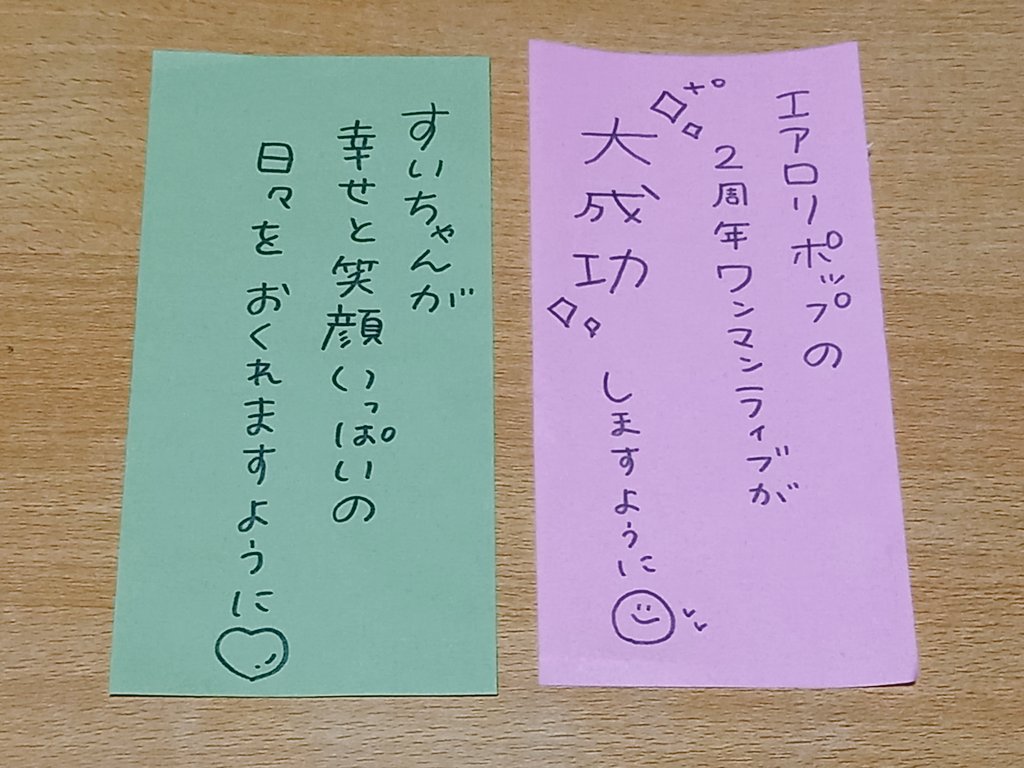 エアロリポップの
2周年ワンマンライブが
大成功
しますように
すいちゃんが
幸せと笑顔いっぱいの
日々をおくれますように